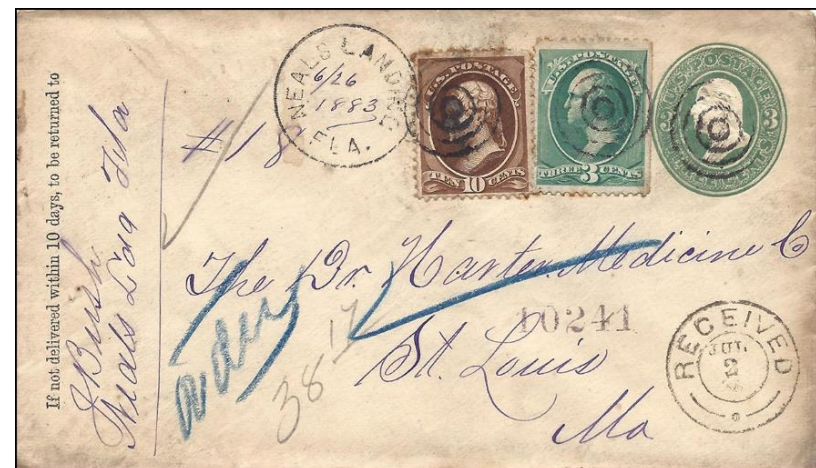 If not delivered within 10 days, to be returned to
J Bush
Neals L'dg Fla
NEALS LANDING
FLA.
6/26
1883
#18
U.S. POSTAGE
TEN 10 CENTS
U.S. POSTAGE
THREE 3 CENTS
U.S. POSTAGE
3 3
The Dr. Harter Medicine Co
10241
St. Louis
Mo
38 17
RECEIVED
JUL
2